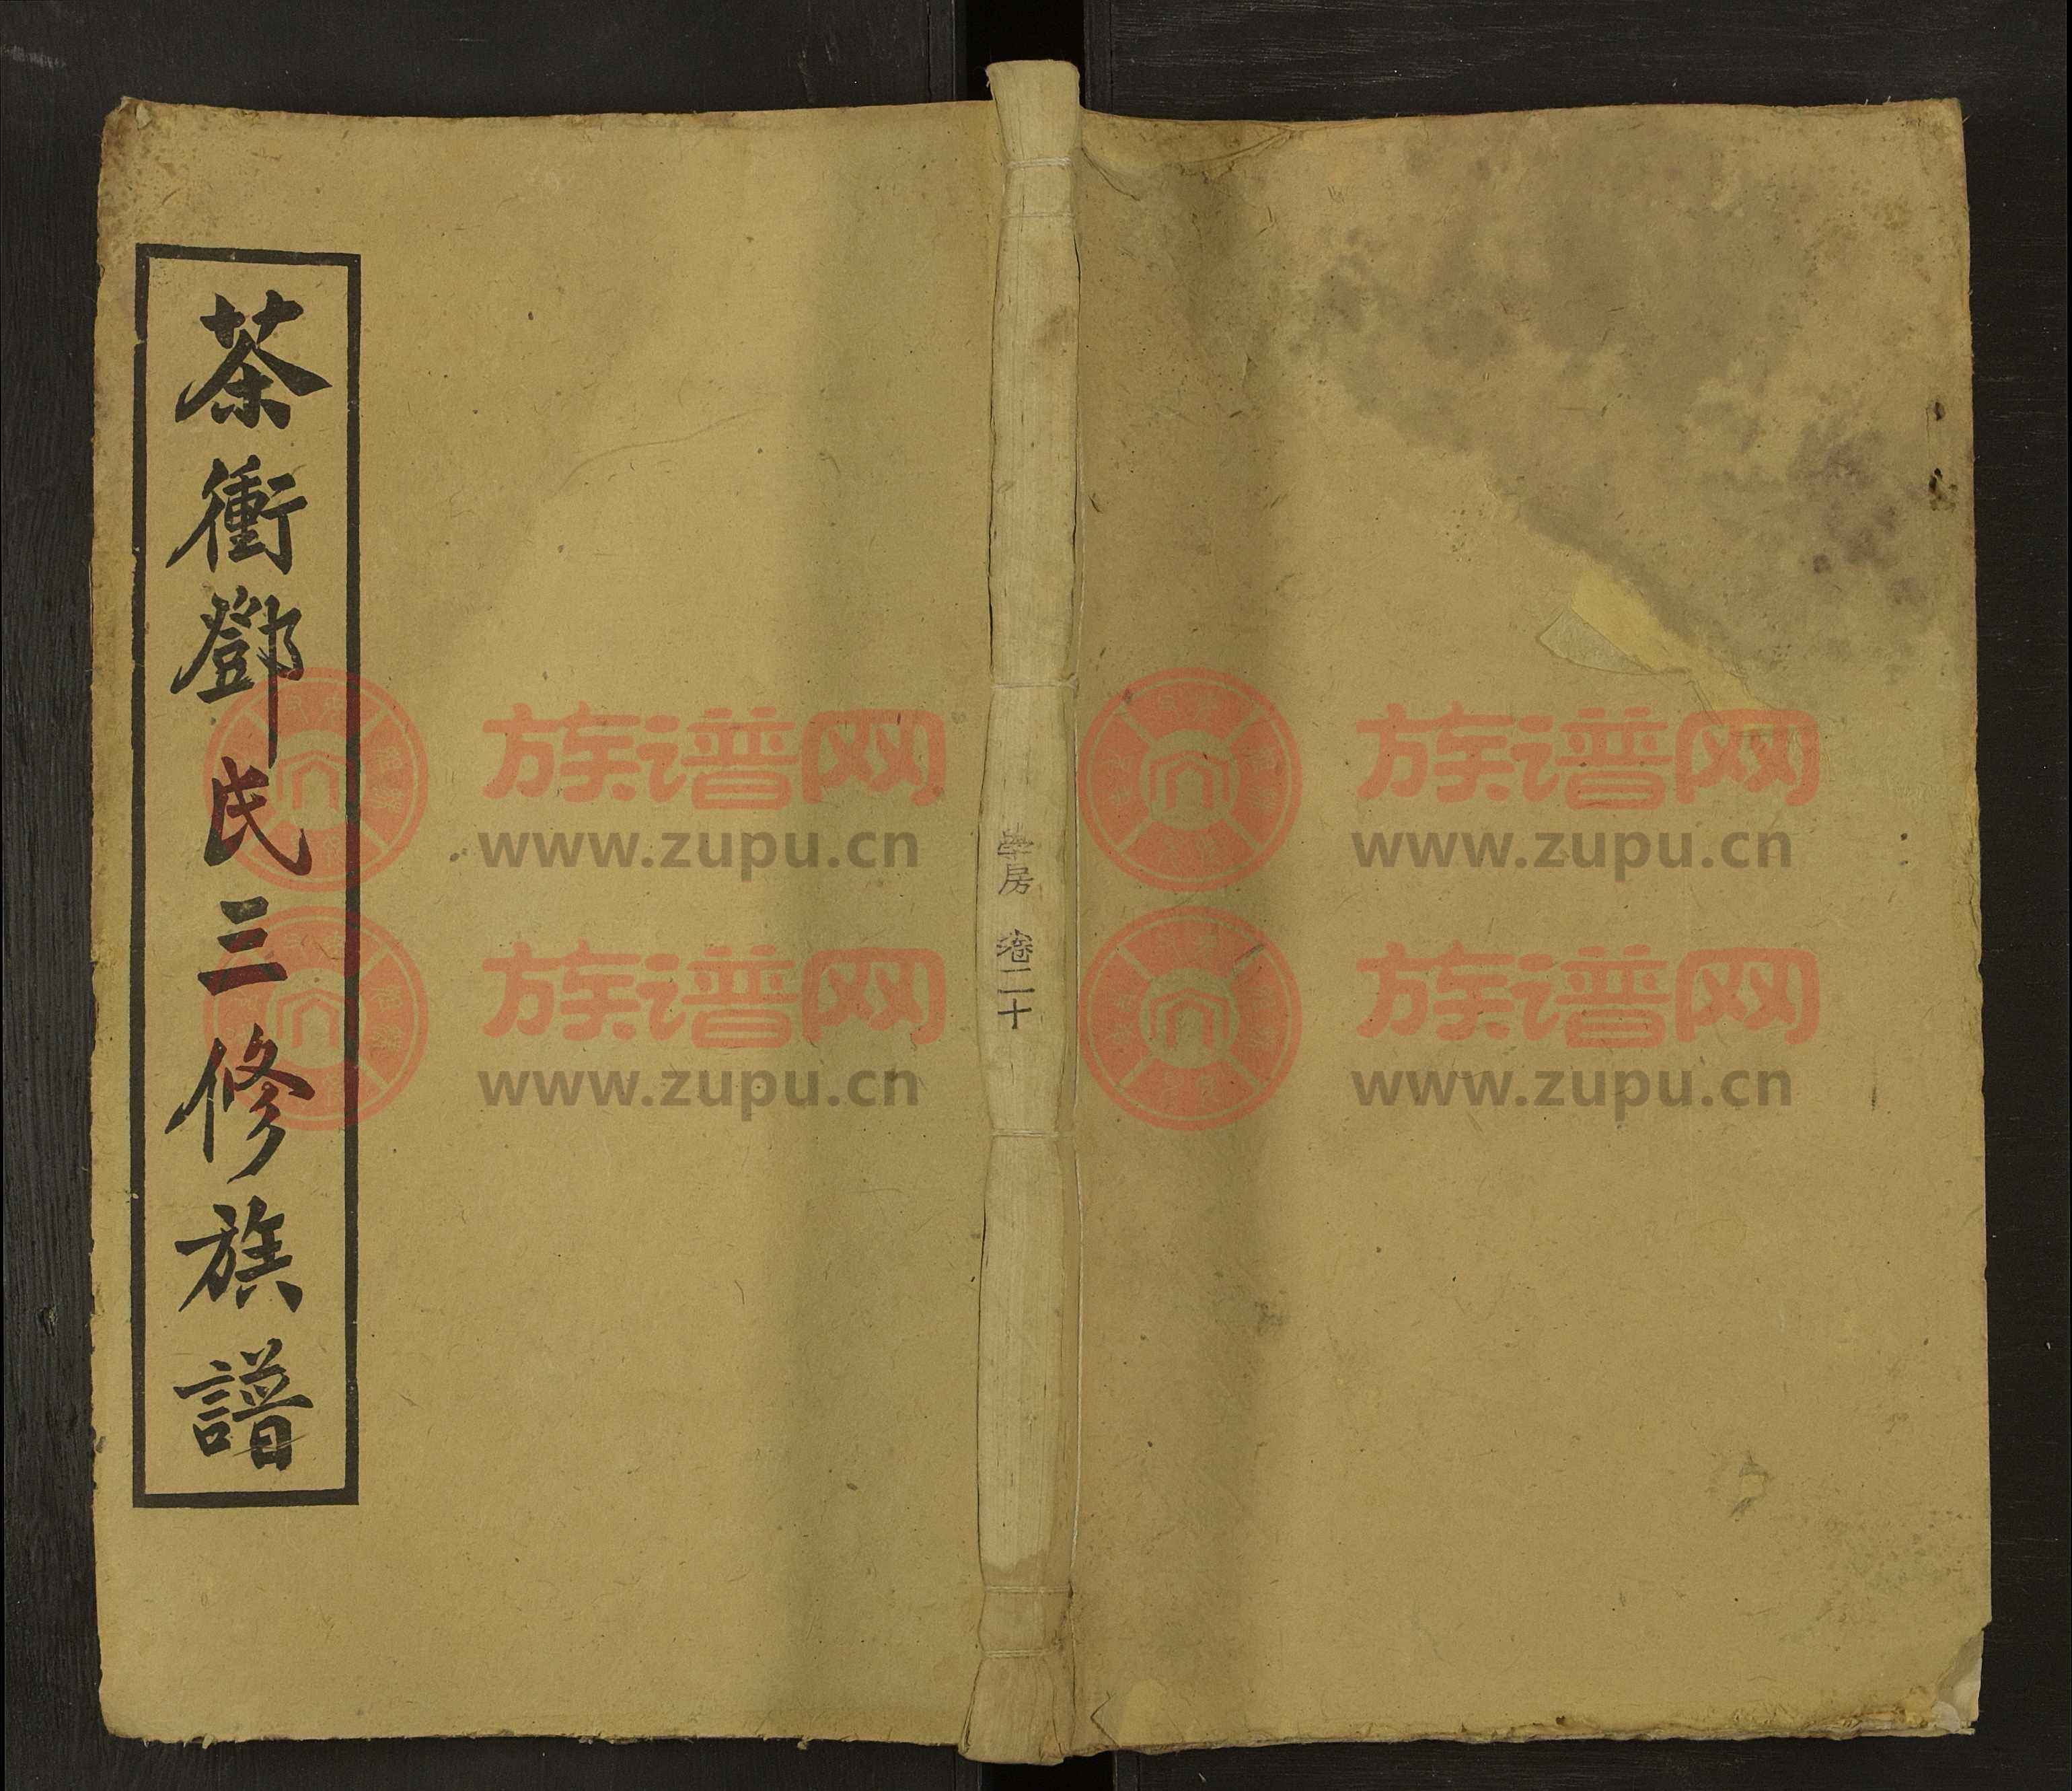 茶衝鄧氏三修族譜
學房 卷二十
族谱网
www.zupu.cn
族谱网
www.zupu.cn
族谱网
www.zupu.cn
族谱网
www.zupu.cn